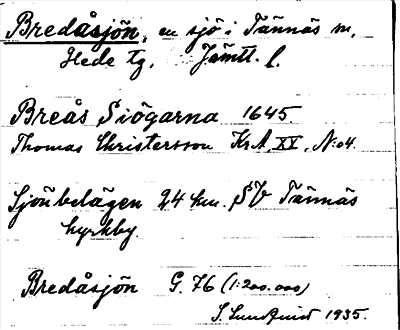 Bredåsjön, en sjö i Tännäs sn,
Hede tg. Jämtl. l.
Breås Siögarna 1645
Thomas Christersson Kr.A, XV, N:o 4.
Sjön belägen 24 km. SV Tännäs
kyrkby.
Bredåsjön G. 76 (1:200.000)
S. Lundquist 1935.